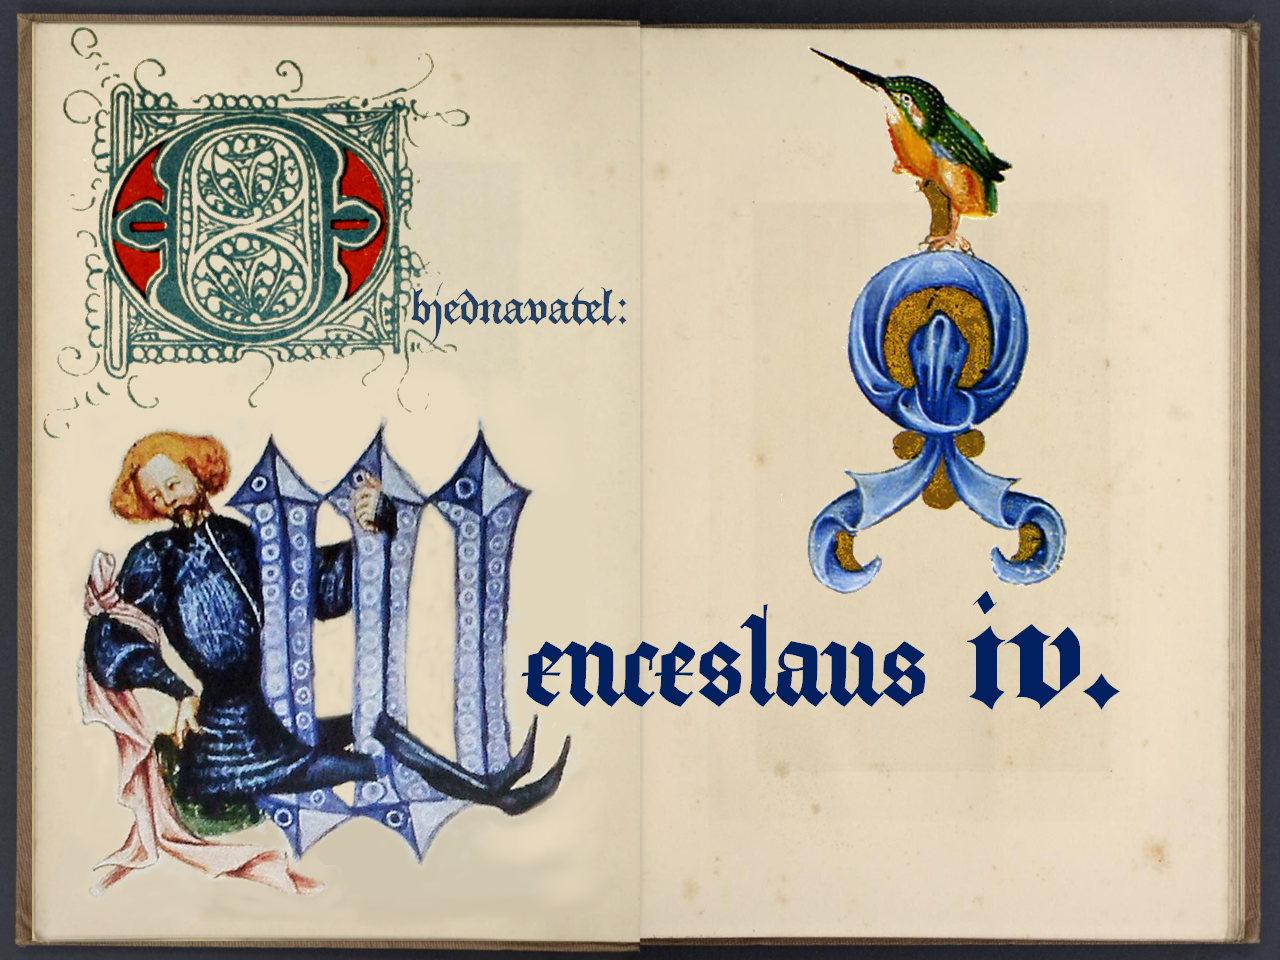 Objednavatel:
Wenceslaus iv.